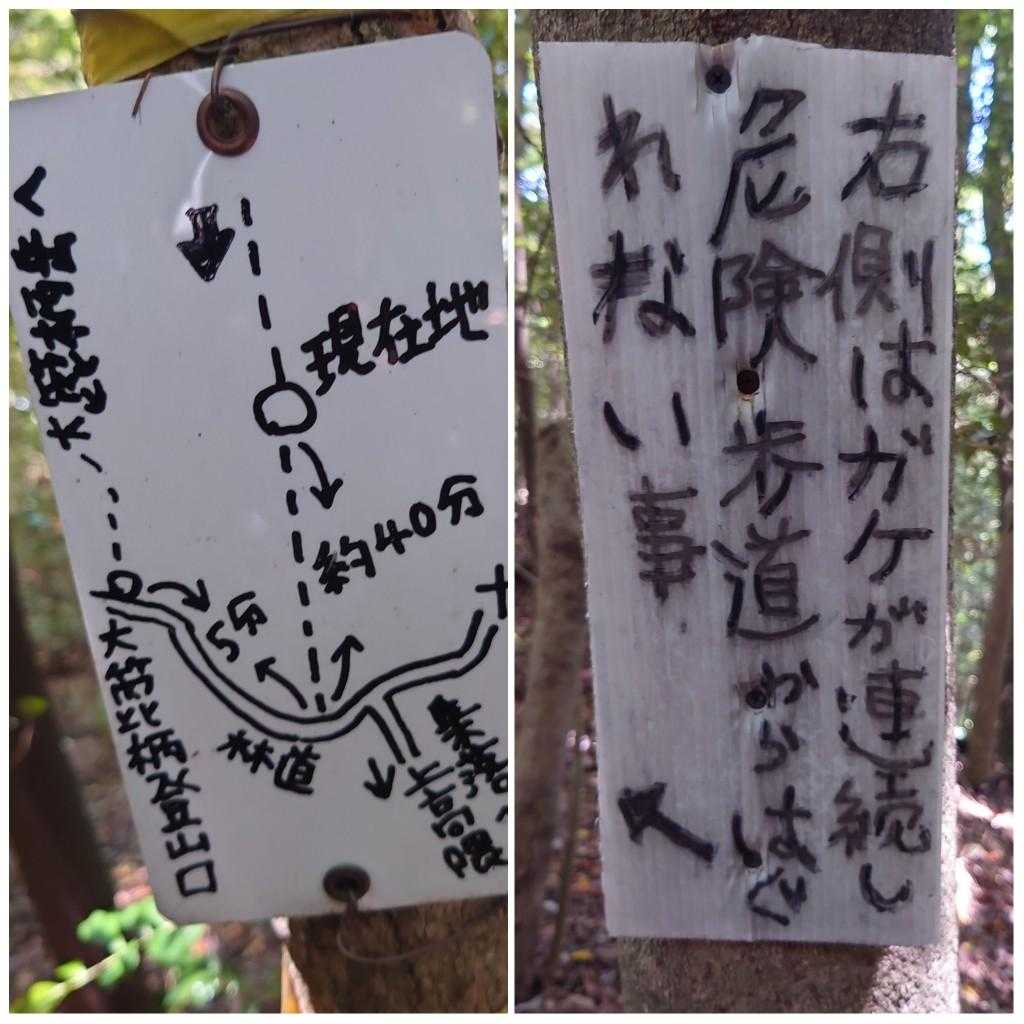 現在地
約40分
5分
林道
大箆柄登山口
上高隈
集落
右側はガケが連続し
危険歩道からはぐ
れない事